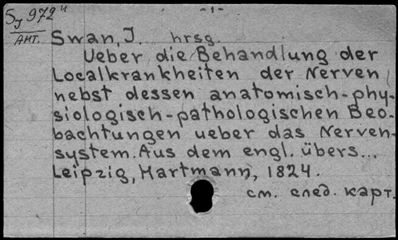 Sy 972 4
- 1 -
АНТ.
Swan, J. hrsg.
Ueber die Behandlung der
Localkrankheiten der Nerven
nebst dessen anatomisch-phy-
siologisch-pathologischen Beo-
bachtungen ueber das Nerven-
system. Aus dem engl. übers...
Leipzig, Hartmann, 1824.
см. след. карт.